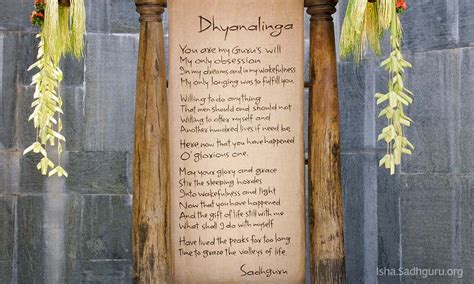 Dhyanalinga
You are my Guru's will
My only obsession
In my dreams and in my wakefulness
My only longing was to fulfill you
Willing to do anything
That men should and should not
Willing to offer myself and
Another hundred lives if need be
Here now that you have happened
O' glorious one.
May your glory and grace
Stir the sleeping hordes
Into wakefulness and light
Now that you have happened
And the gift of life still with me
What shall I do with myself
Have lived the peaks for too long
Time to graze the valleys of life.
Sadhguru
Isha.Sadhguru.org